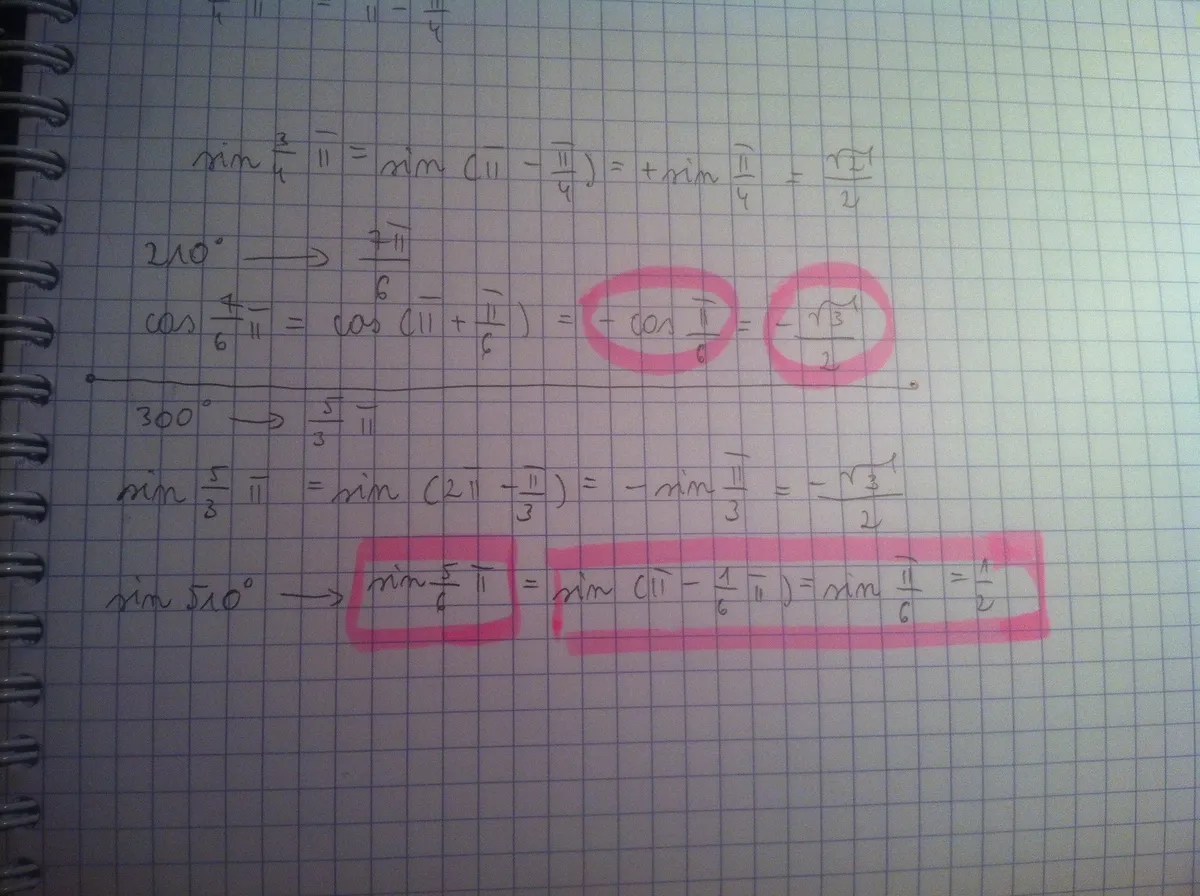 π = π - π/4
sin 3/4 π = sin (π - π/4) = + sin π/4 = √2/2
210° → 7π/6
cos 7/6 π = cos (π + π/6) = - cos π/6 = - √3/2
300° → 5/3 π
sin 5/3 π = sin (2π - π/3) = - sin π/3 = - √3/2
sin 510° → sin 5/6 π = sin (π - 1/6 π) = sin π/6 = 1/2